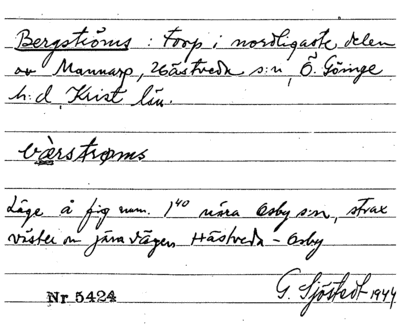 Bergströms : Torp i nordligaste delen
av Mannarp, Hästveda s:n, Ö. Göinge
h:d, Krist län.
bærstroms
Läge å fig num. 1⁴⁰ nära Osby s:n, strax
väster om järnvägen Hästveda - Osby
Nr 5424 G. Sjöstedt 1944